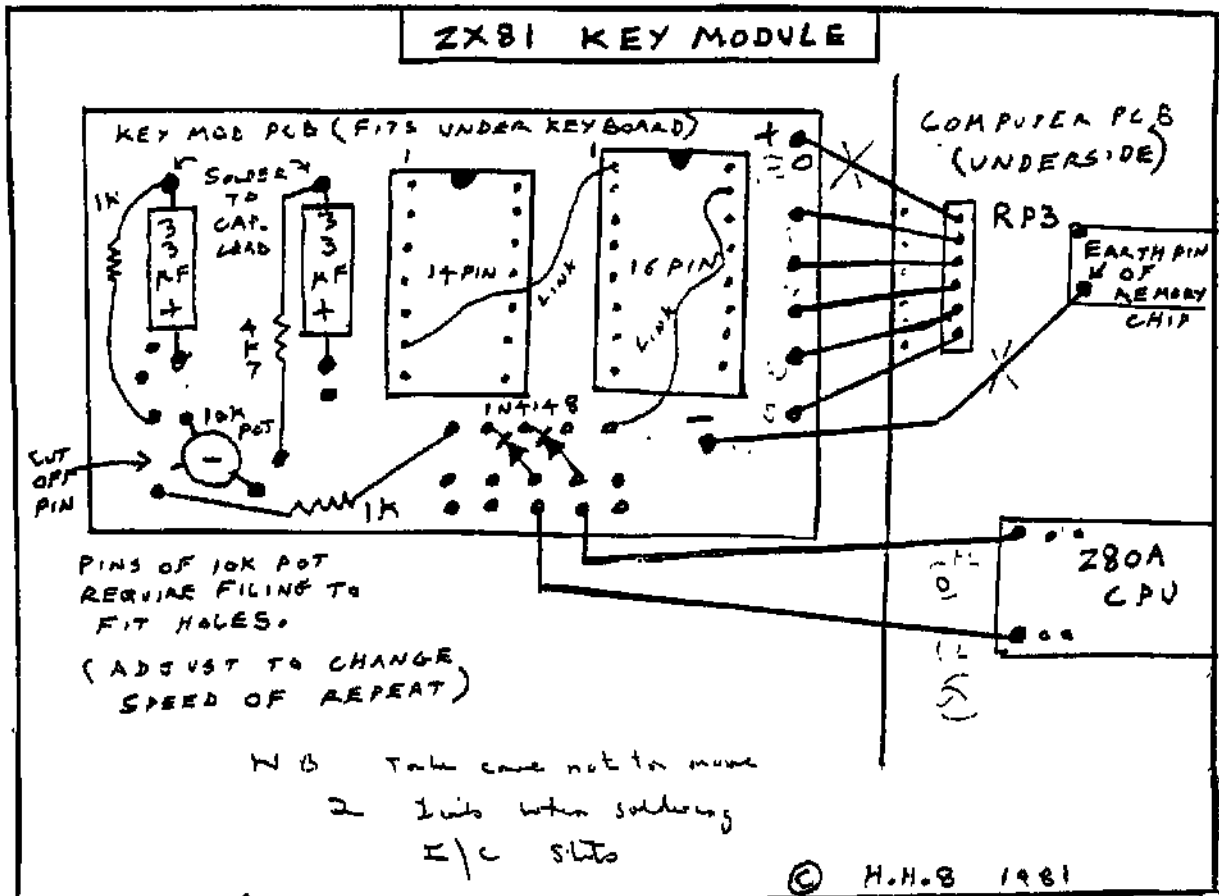 ZX81 KEY MODULE
KEY MOD PCB (FITS UNDER KEYBOARD)
COMPUTER PCB
(UNDERSIDE)
SOLDER
TO
CAP.
LEAD
1K
33µF
+
4K7
33µF
+
1
14 PIN
LINK
1
16 PIN
LINK
+
RP3
EARTH PIN
OF
MEMORY
CHIP
1N4148
-
10K
POT
-
CUT
OFF
PIN
1K
Z80A
CPU
PINS OF 10K POT
REQUIRE FILING TO
FIT HOLES.
(ADJUST TO CHANGE
SPEED OF REPEAT)
NB Take care not to move
2 links when soldering
I/C
© H.H.8 1981